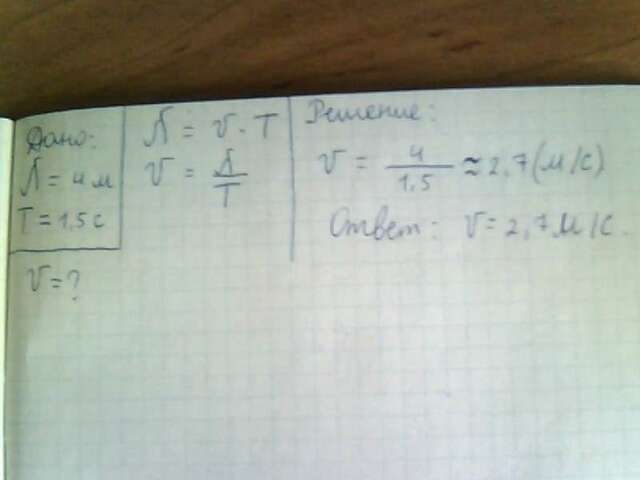 Дано:
λ = 4 м
T = 1,5 с
V = ?
λ = v · T
V = λ/T
Решение:
V = 4/1,5 ≈ 2,7 (м/с)
Ответ: V = 2,7 м/с.